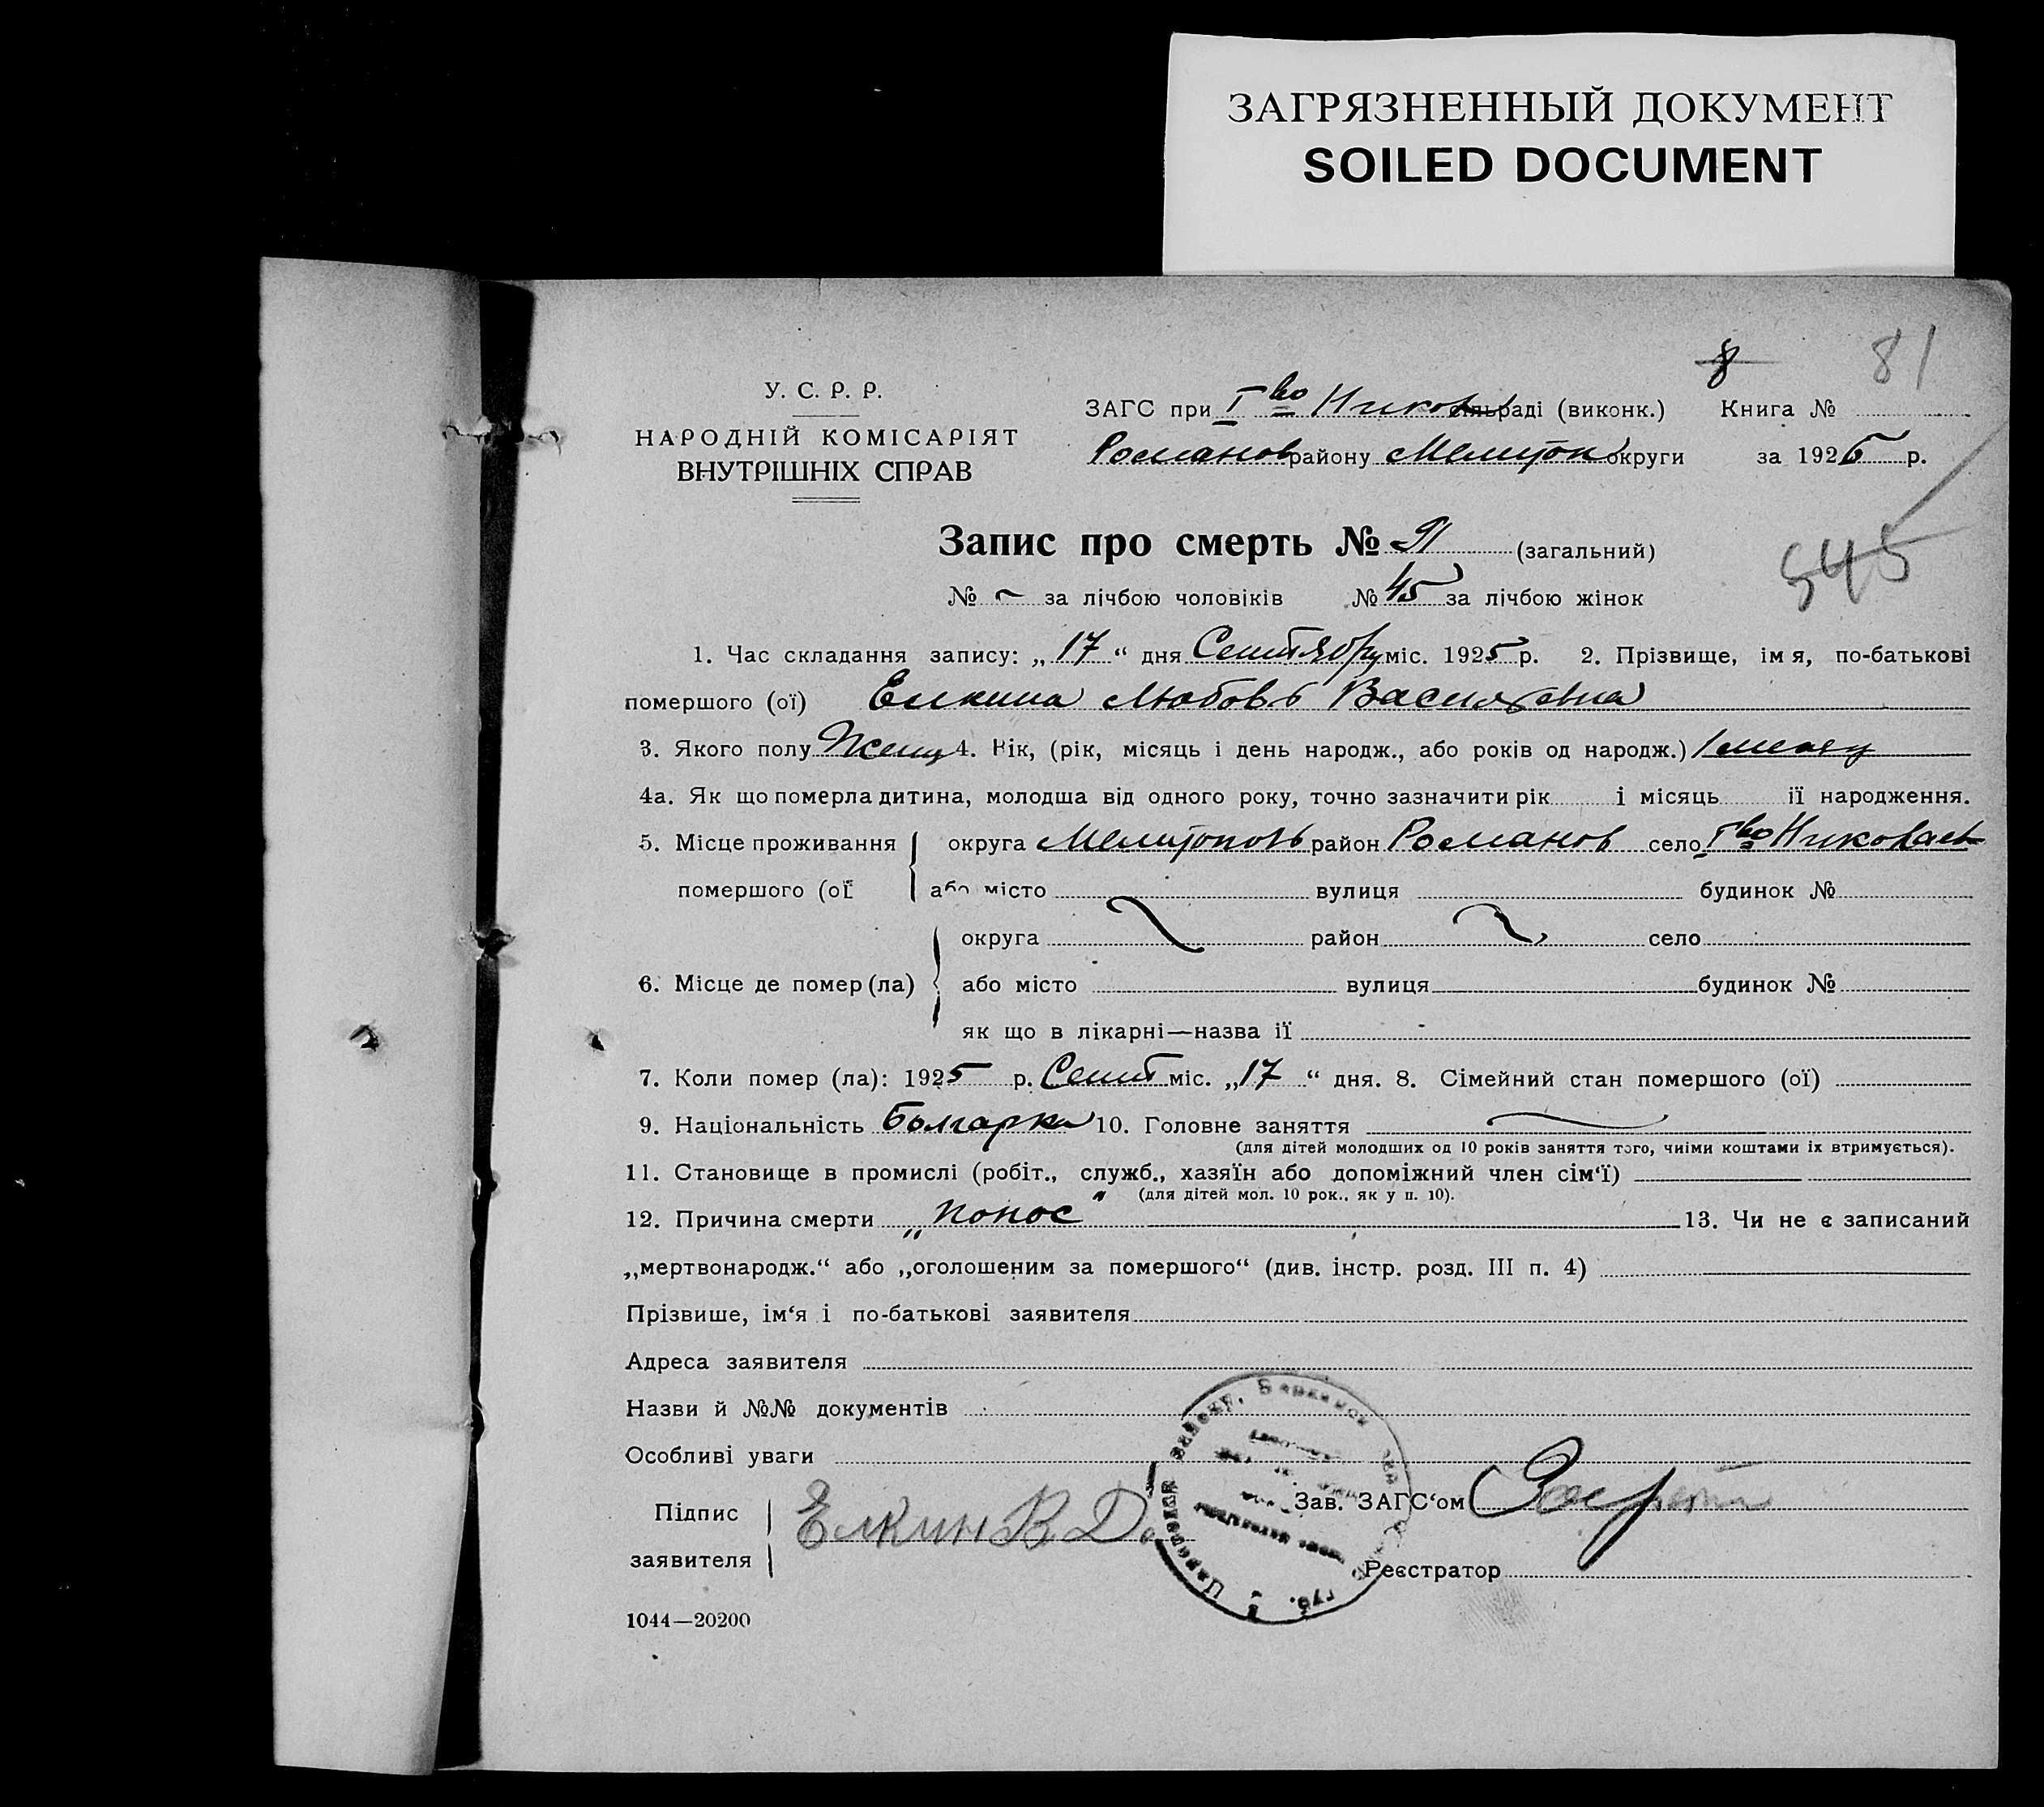 ЗАГРЯЗНЕННЫЙ ДОКУМЕНТ
SOILED DOCUMENT
8 81
У. С. Р. Р.
НАРОДНІЙ КОМІСАРІЯТ
ВНУТРІШНІХ СПРАВ
ЗАГС при І во Никол раді (виконк.) Книга №
Романов району Мелитоп округи за 1925 р.
Запис про смерть № 91 (загальний)
545
№ — за лічбою чоловіків № 45 за лічбою жінок
1. Час складання запису: „17“ дня Сентября міс. 1925 р. 2. Прізвище, імя, по-батькові
помершого (ої) Елкина Любовь Васильевна
3. Якого полу Женщ 4. Вік, (рік, місяць і день народж., або років од народж.) 1 месяц
4а. Як що померла дитина, молодша від одного року, точно зазначити рік і місяць її народження.
5. Місце проживання округа Мелитополь район Романов село І во Николаев
помершого (ої або місто вулиця будинок №
округа район село
6. Місце де помер (ла) або місто вулиця будинок №
як що в лікарні—назва її
7. Коли помер (ла): 1925 р. Сент міс. „17“ дня. 8. Сімейний стан помершого (ої)
9. Національність Болгарка 10. Головне заняття
(для дітей молодших од 10 років заняття того, чиїми коштами їх втримується).
11. Становище в промислі (робіт., служб., хазяїн або допоміжний член сім‘ї)
(для дітей мол. 10 рок., як у п. 10).
12. Причина смерти „понос“ 13. Чи не є записаний
„мертвонародж.“ або „оголошеним за помершого“ (див. інстр. розд. III п. 4)
Прізвише, ім‘я і по-батькові заявителя
Адреса заявителя
Назви й №№ документів
Особливі уваги
Підпис
заявителя
Елкин В Д.
Зав. ЗАГС‘ом
Реєстратор
1044—20200